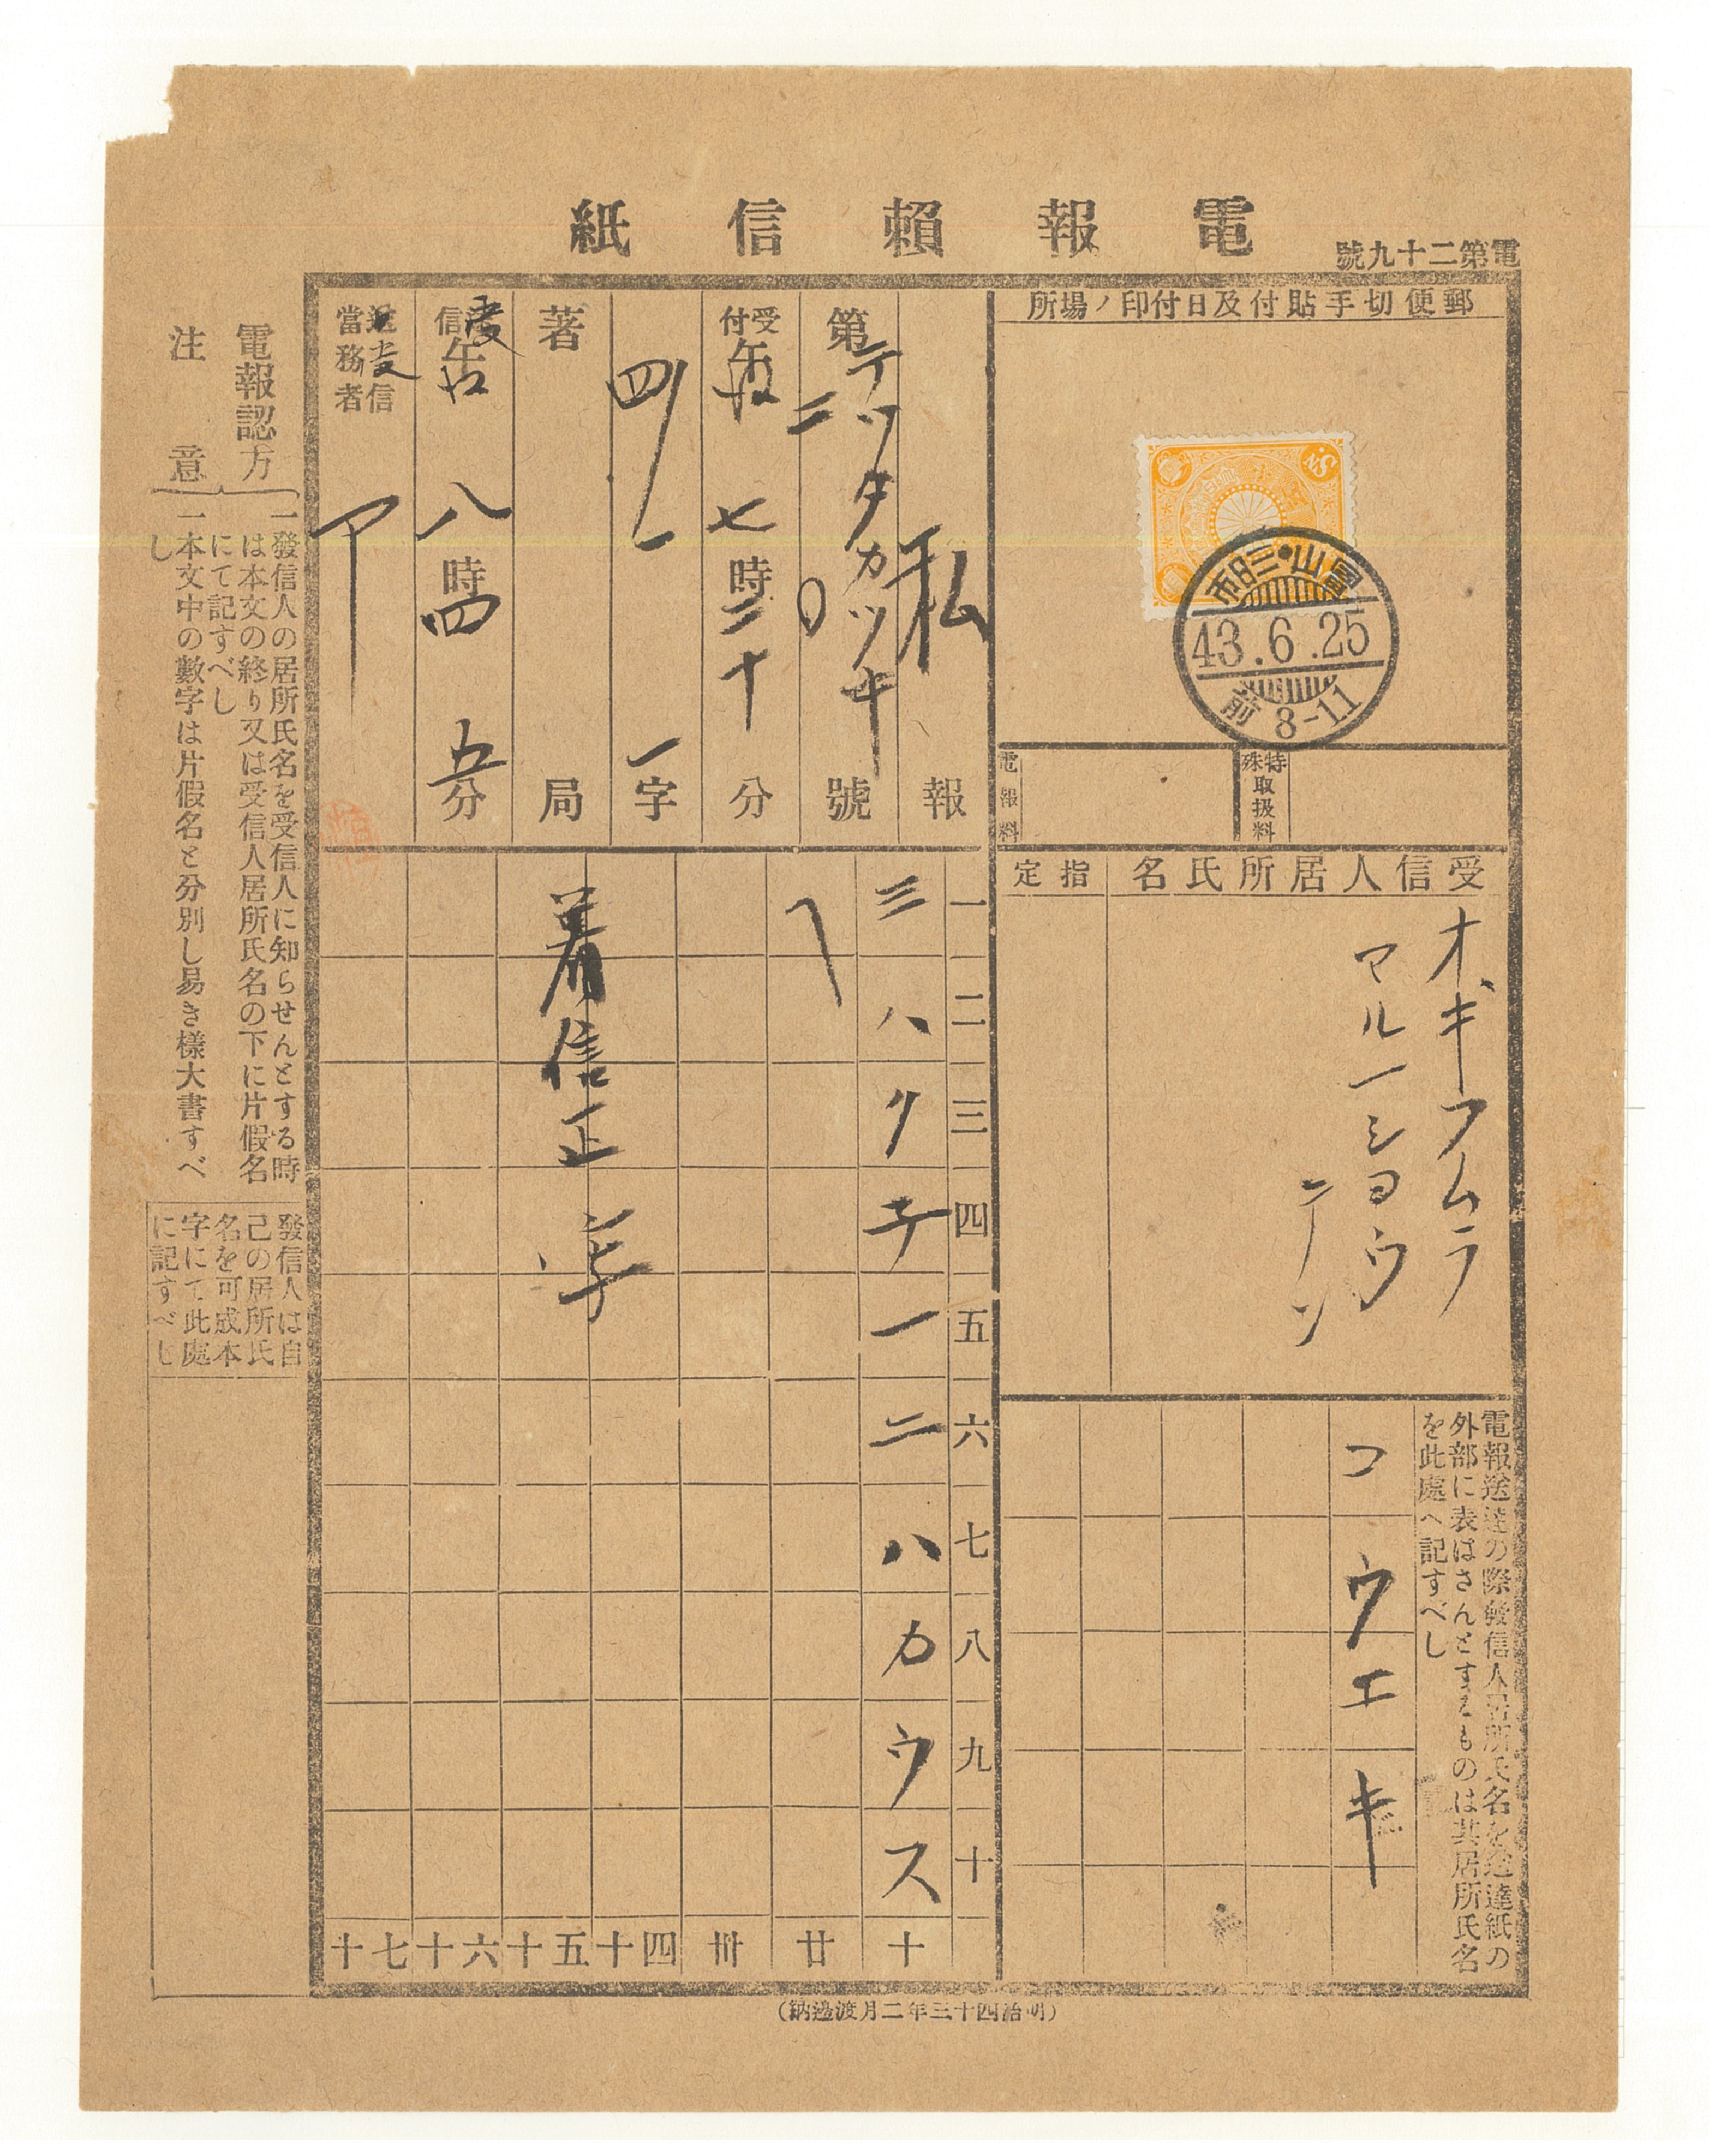 電報賴信紙
電第二十九號
郵便切手貼付及日付印ノ場所
岡山・三日市
43.6.25
前 8-11
電報料
特殊取扱料
受信人居所氏名
指定
オキフムラ
マルーシヨウ
テン
電報送達の際發信人居所氏名を送達紙の
外部に表はさんとするものは其居所氏名
を此處へ記すべし
コウエキ
私報
第 二〇 號
テツタカツナ
受付 午前 七時二十分
四ノ一 一字
著 局
受信 午前 八時四五分
送受信當務者
ア
一二三四五六七八九十
三ハクチ一ニハカウス
へ
著信正字
十 廿 卅 四十 五十 六十 七十
電報認方
注意
一發信人の居所氏名を受信人に知らせんとする時
は本文の終り又は受信人居所氏名の下に片假名
にて記すべし
一本文中の數字は片假名と分別し易き樣大書すべ
し
發信人は自
己の居所氏
名を可成本
字にて此處
に記すべし
(明治四十三年二月渡邉納)